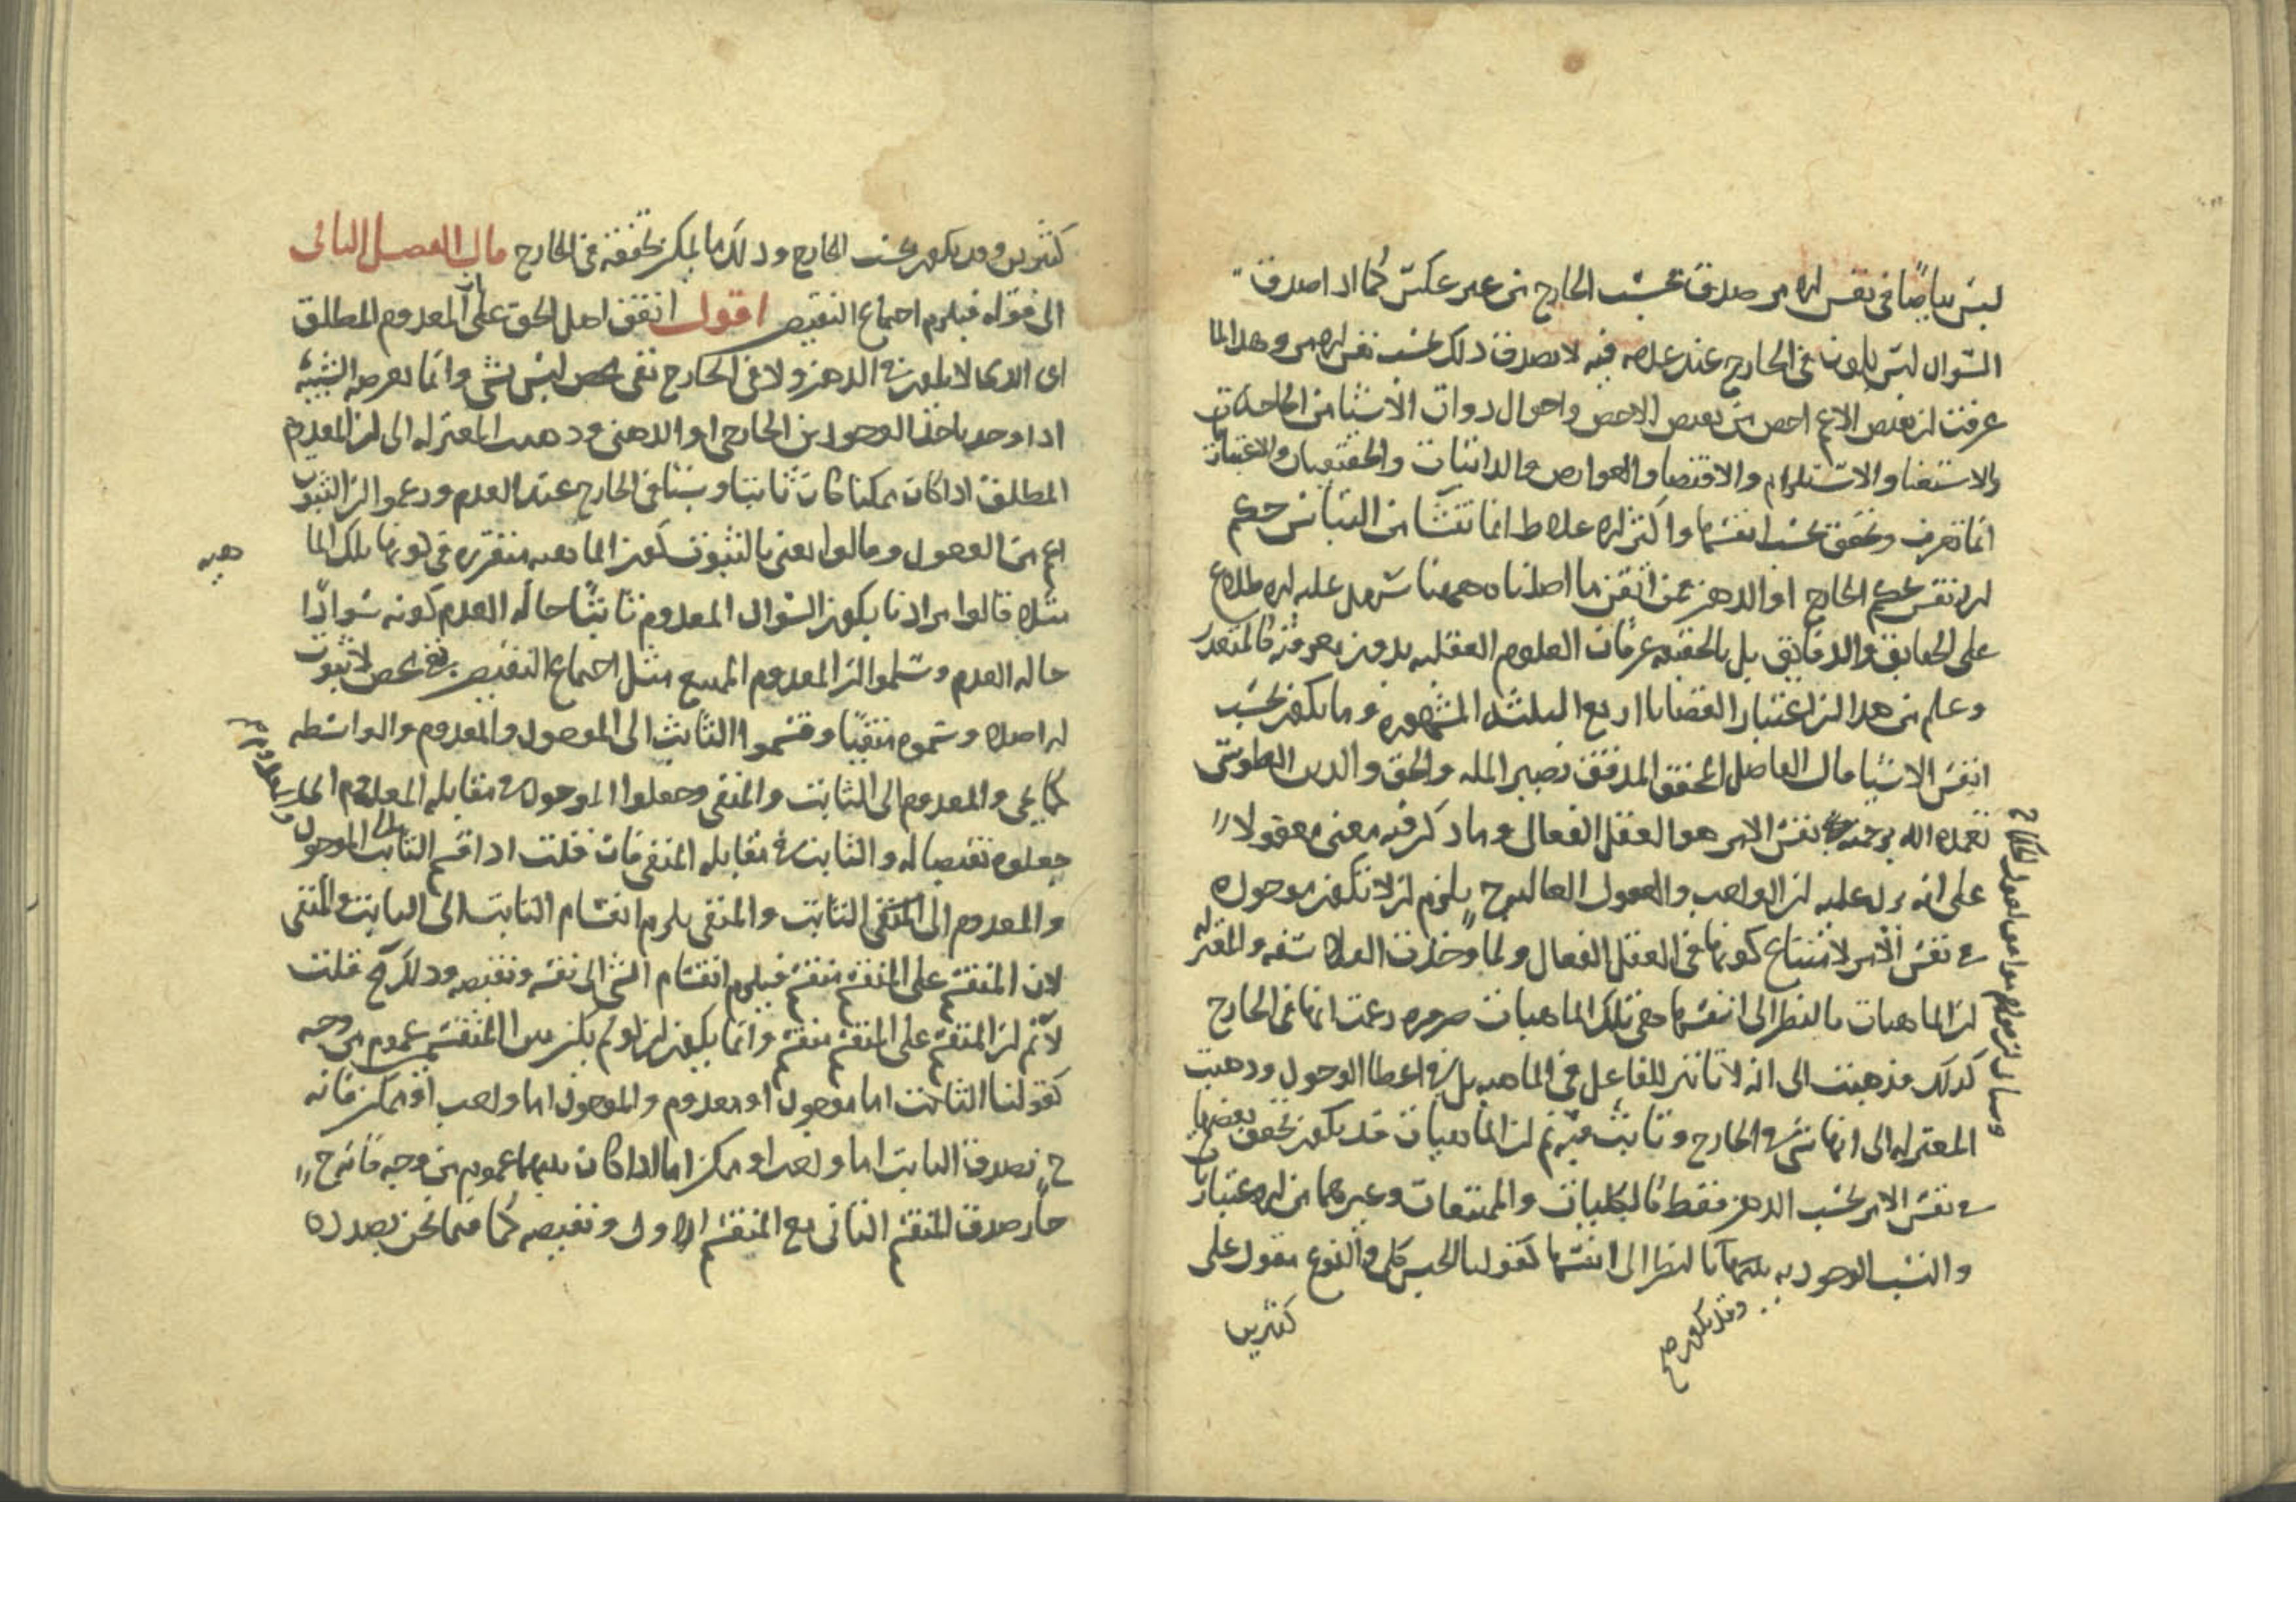 ليس بياضا في نفس الامر صدق بحسب الخارج من غير عكس كما اذا صدق
السواد ليس بلون في الخارج عند عدمه فيه لا يصدق ذلك بحسب نفس الامر وهذا لما
عرفت ان نقيض الاعم اخص من نقيض الاخص واحوال ذوات الاشيا من الحاجات
والاستغنا والاستلزام والاقتضا والعوارض والذاتيات والاعتبارات
انما تعرف وتحقق بحسب انفسها واكثر الاغلاط انما تنشا من التباس حكم
الانفس بحكم الخارج او الذهن فمن اتقن ما اصلناه ههنا سهل عليه الاطلاع
على الحقايق والدقايق بل بالحقيقة عرفان العلوم العقلية بدون معرفته كالمتعذر
وعلم من هذا ان اعتبار القضايا اربع الثلثة المشهورة وما يكون بحسب
انفس الاشيا قال الفاضل المحقق المدقق نصير الملة والحق والدين الطوسي
تغمده الله برحمته نفس الامر هو العقل الفعال وما ذكر فيه معنى معقولا
على انه يرد عليه ان الواجب والعقول العالية ح يلزم ان لا تكون موجودة
في نفس الامر لامتناع كونها في العقل الفعال ولما وجدت الفلاسفة والمعتزلة
ان الماهيات بالنظر الى انفسها هي تلك الماهيات ضرورة زعمت انها في الخارج
كذلك فذهبت الى انه لا تاثير للفاعل في الماهية بل في اعطا الوجود وذهبت
المعتزلة الى انها شي في الخارج وثابت فيه ثم ان الماهيات قد يكون تحقق بعضها
في نفس الامر بحسب الذهن فقط كالكليات والممتنعات وغيرهما من الاعتبارات
والنسب الوجودية بينهما بالنظر الى انفسها كقولنا الجنس كلي والنوع مقول على
وقد يكون صح
كثيرين
كثيرين وقد يكون بحسب الخارج وذلك ما يمكن تحققه في الخارج قال الفصل الثاني
الى قوله فيلزم اجتماع النقيضين اقول اتفق اهل الحق على ان المعدوم المطلق
اى الذى لا يكون في الذهن ولا في الخارج نفي محض ليس بشي وانما يعرضه الشيئية
اذا وجد باحد الوجودين الخارجي او الذهني وذهبت المعتزلة الى ان المعدوم
المطلق اذا كان ممكنا كان ثابتا وشيئا في الخارج عند العدم وزعموا ان الثبوت
اعم من الوجود وقالوا نعني بالثبوت كون الماهية متقررة في كونها تلك الما
هية
مثلا قالوا مرادنا بكون السواد المعدوم ثابتا حالة العدم كونه سوادا
حالة العدم وسلموا ان المعدوم الممتنع مثل اجتماع النقيضين نفي محض لا ثبوت
له اصلا وسموه منفيا وقسموا الثابت الى الموجود والمعدوم والواسطة
كما يجي والمعدوم الى الثابت والمنفي وجعلوا الموجود في مقابلة المعدوم
جعلوه نقيضا له والثابت في مقابلة المنفي فان قلت اذا قسم الثابت الى الموجود
والمعدوم الى الثابت والمنفي يلزم انقسام الثابت الى الثابت والمنفي
لان المنقسم على المنقسم منقسم فيلزم انقسام الشي الى نفسه ونقيضه وذلك مح قلت
لا نم ان المنقسم على المنقسم منقسم وانما يكون ان لو لم يكن بين المنقسمين عموم من وجه
كقولنا الثابت اما موجود او معدوم والموجود اما واجب او ممكن فانه
ح يصدق الثابت اما واجب او ممكن اما اذا كان بينهما عموم من وجه فانه ح
جاز صدق المنقسم الثاني مع المنقسم الاول ونقيضه كما فيما نحن بصدده